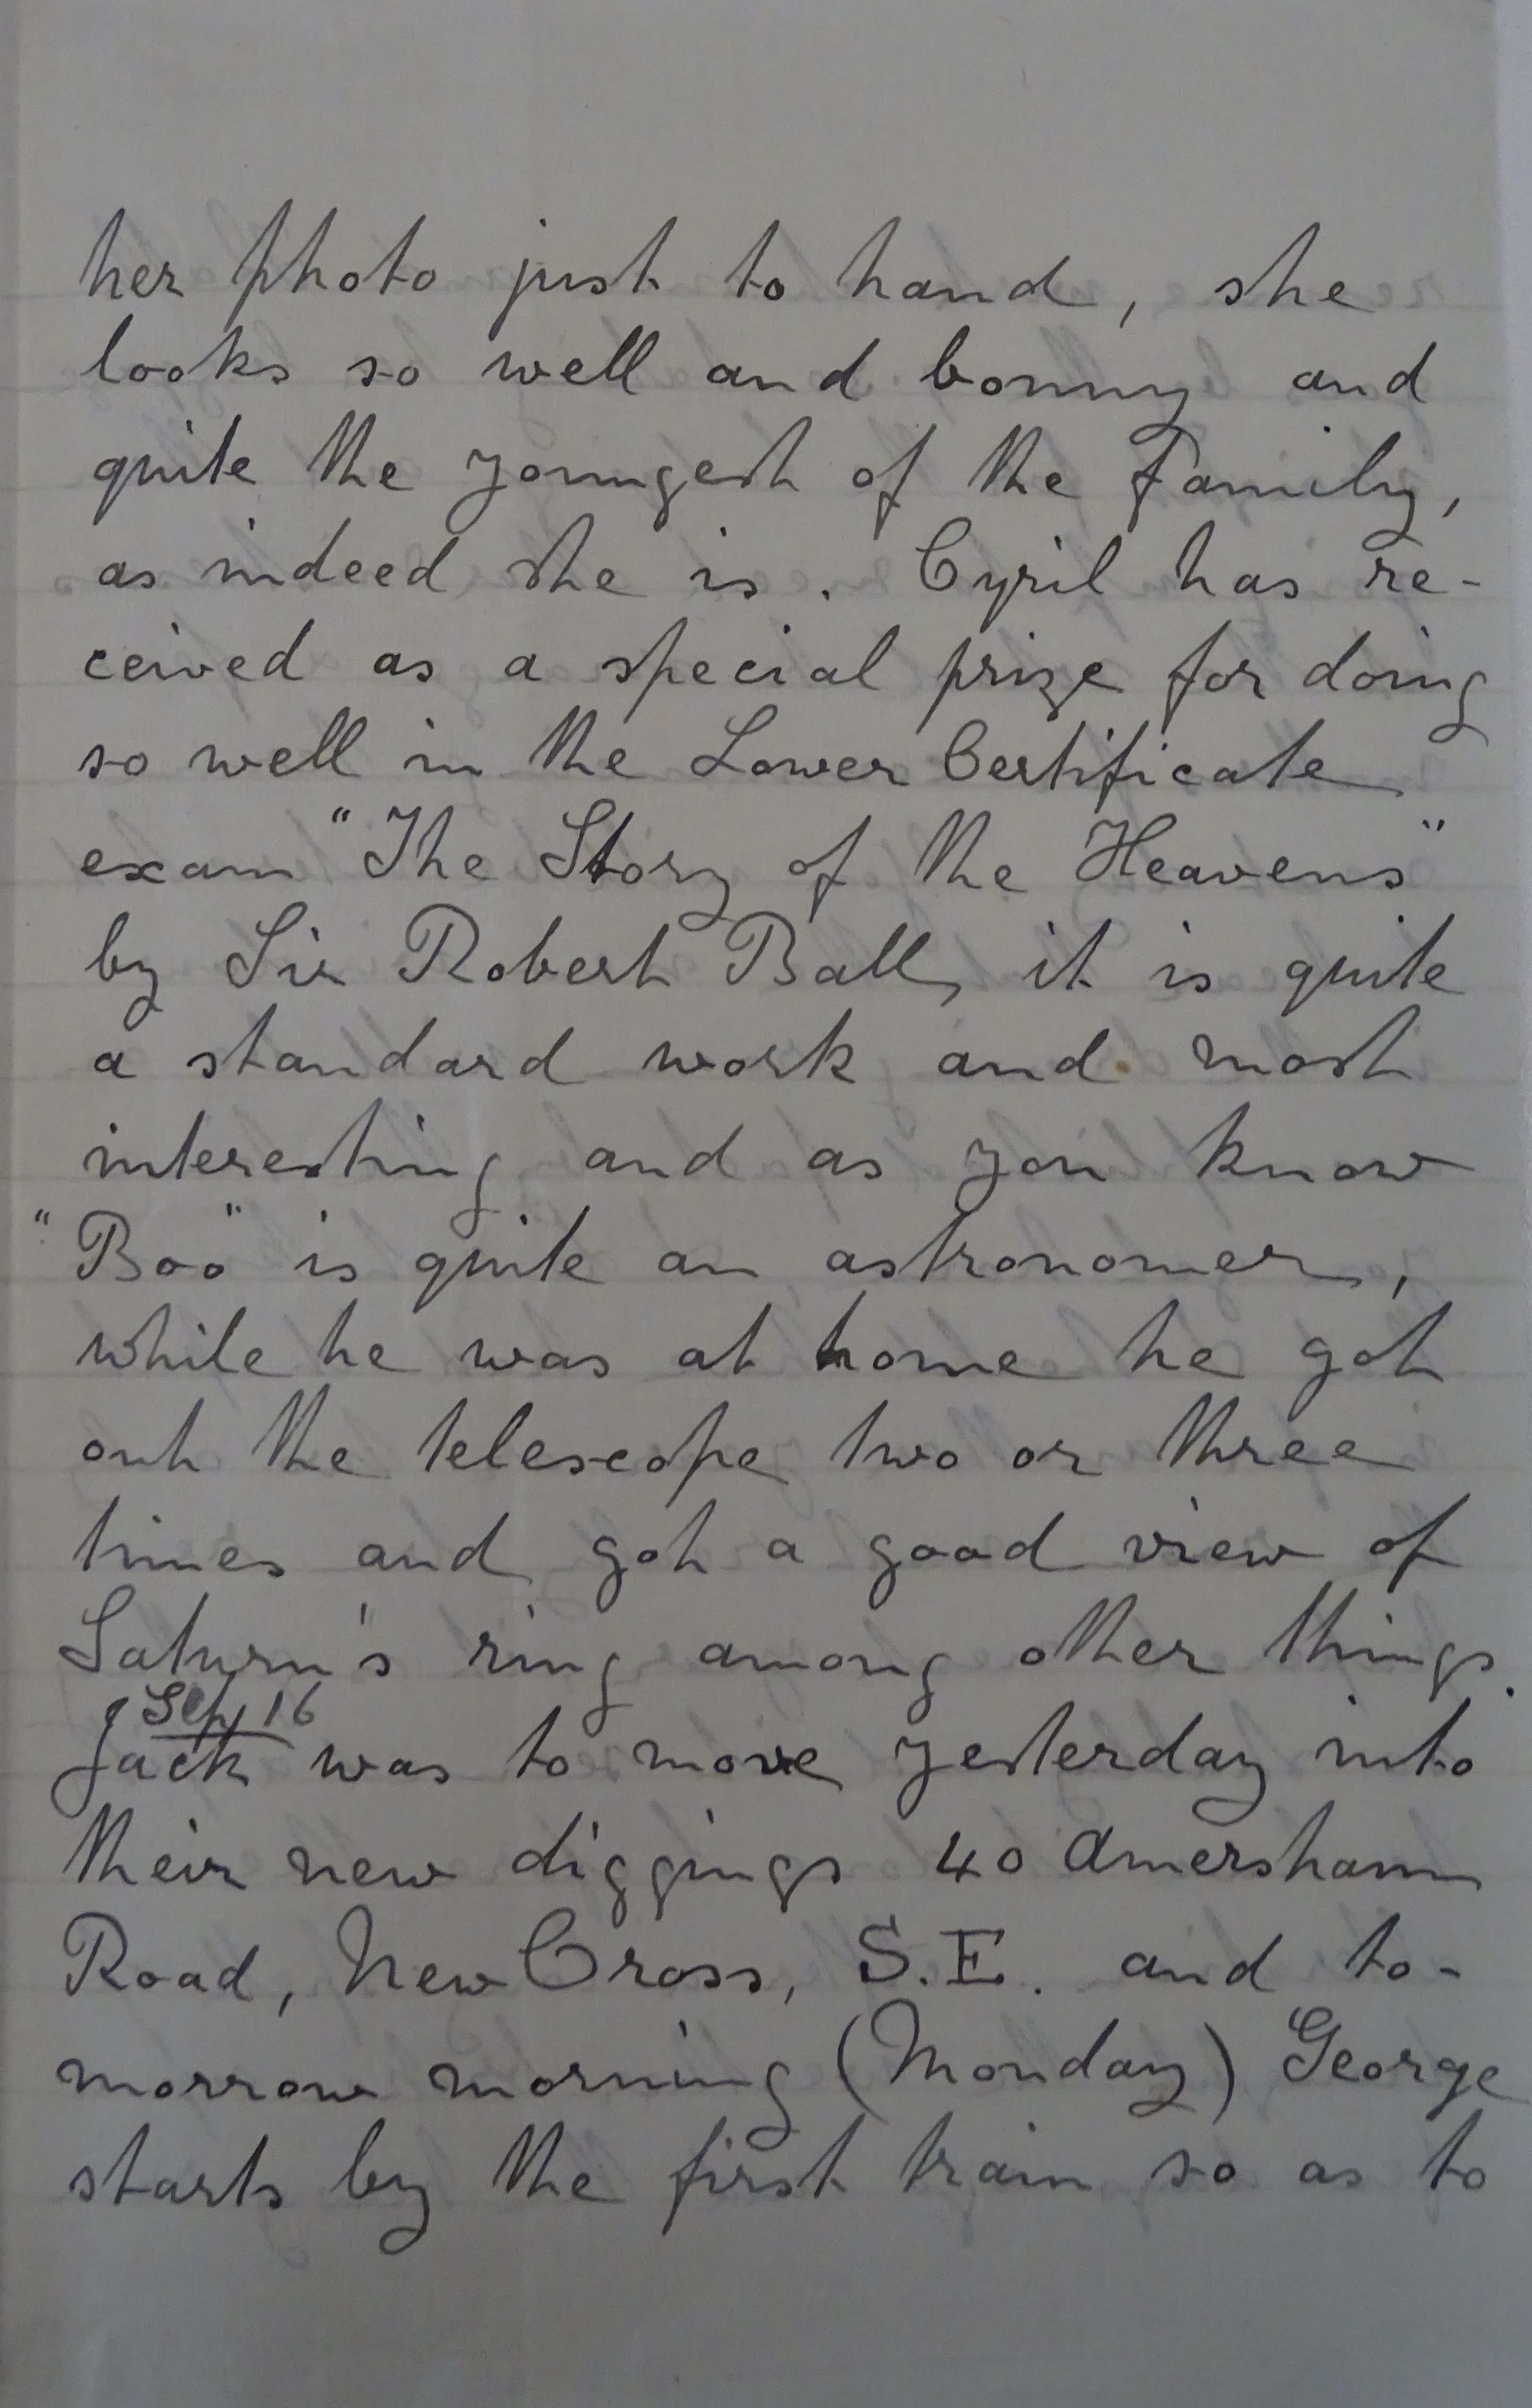 her photo just to hand, she
looks so well and bonny and
quite the youngest of the Family,
as indeed she is. Cyril has re-
ceived as a special prize for doing
so well in the Lower Certificate
exam "The Story of the Heavens"
by Sir Robert Ball, it is quite
a standard work and most
interesting and as you know
"Boo" is quite an astronomer,
while he was at home he got
out the telescope two or three
times and got a good view of
Saturn's ring among other things.
Sep 16
Jack was to move yesterday into
their new diggings 40 Amersham
Road, New Cross, S.E. and to-
morrow morning (Monday) George
starts by the first train so as to